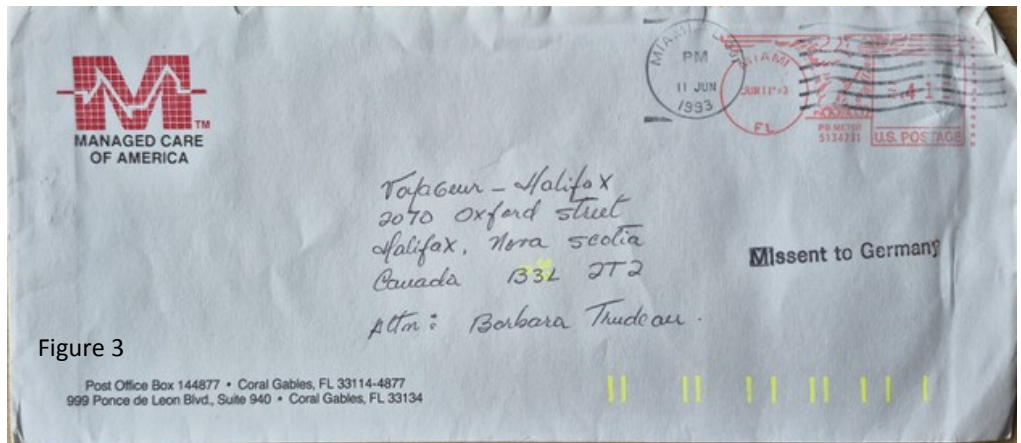 M TM
MANAGED CARE
OF AMERICA
MIAMI
PM
11 JUN
1993
MIAMI
JUN 11 '93
FL
PB METER
5134711
U.S. POSTAGE
Voyageur - Halifax
2070 Oxford Street
Halifax, Nova Scotia
Canada B3L 2T2
Attn: Barbara Trudeau.
Missent to Germany
Figure 3
Post Office Box 144877 • Coral Gables, FL 33114-4877
999 Ponce de Leon Blvd., Suite 940 • Coral Gables, FL 33134